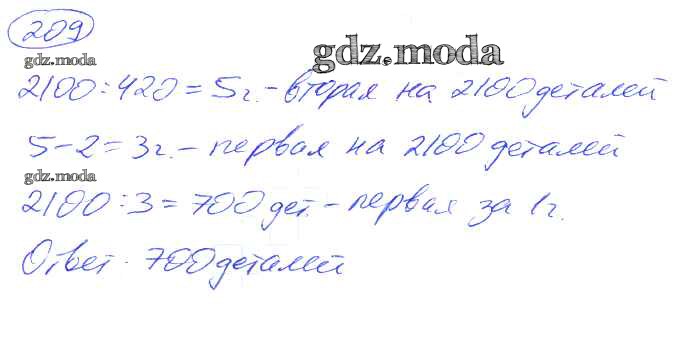 209
gdz.moda
gdz.moda
2100:420=5г.-вторая на 2100 деталей
5-2=3г.-первая на 2100 деталей
gdz.moda
2100:3=700 дет.-первая за 1г.
Ответ. 700 деталей